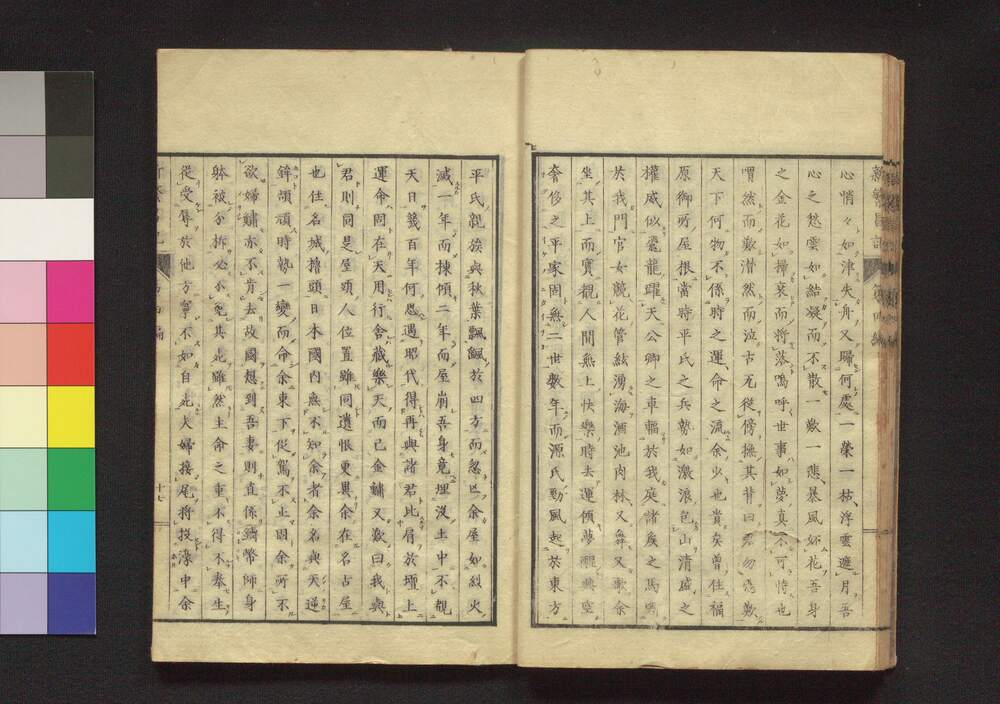 心悄々如津失舟又歸何處一榮一枯浮雲遮月吾
心之愁雲如結凝而不散一歎一悲暴風妬花吾身
之金花如揮衰而將落嗚呼世事如夢真不可恃也
喟然而歎潸然而泣古瓦從傍撫其背曰君勿愁歎
天下何物不係時之運命之流余少也貴矣曾住福
原御所屋根當時平氏之兵勢如激浪色山清盛之
權威似毫龍躍天公卿之車轜於我庭諸矣之馬
於我門官女競花管絃湧海酒池肉林又舞又歌余
坐其上而實觀人間無上快樂時去運傾夢醒興空
奢侈之平家固無二世數年而源氏勁風起於東方
平氏親族與秋葉飄颻於四方而忽亡余屋如烈火
滅一年而棟傾二年而屋崩吾身竟埋沒土中不覩
天日幾百年何思遇昭代得再與諸君比肩於壇上
運命同在天用行舍藏樂天而已金鏽又歎曰我與
君則同是屋頭人位置雖同遺恨更異余在名古屋
也住名城擔頭日本國内無不知余者余名與天運
鋒頡頏時勢一變而命余東下促駕不止因余所不
欲婦鏽亦不肯去故國想到吾妻則直係締幣師身
躰被分拆必不免其死雖然主命之重不得不奉生
從受辱於他方寧不如自死夫婦接尾將投濠中余
十七